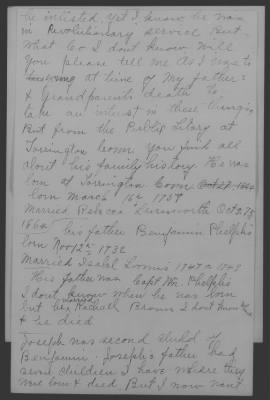 he enlisted. Yet I know he was
in Revolutionary service But
what Co I dont know will
you please tell me As I was to
young at time of My father
& Grandparents death to
take an intrest in these things
But from the Public Libary at
Torrington Conn you find all
about his family history He was
born at Torrington Conn
born March 1st
Married Rebecca Oct 27
his father Benjamin Phelphs
born Nov 12th 1732
Married Isabel Loomis
His father was Capt Wm Phelphs
I dont know when he was born
but he married Rachall Brown I dont know
& he died
Joseph was second child of
Benjamin. Joseph's father had
seven children I have where they
were born & died But I now want